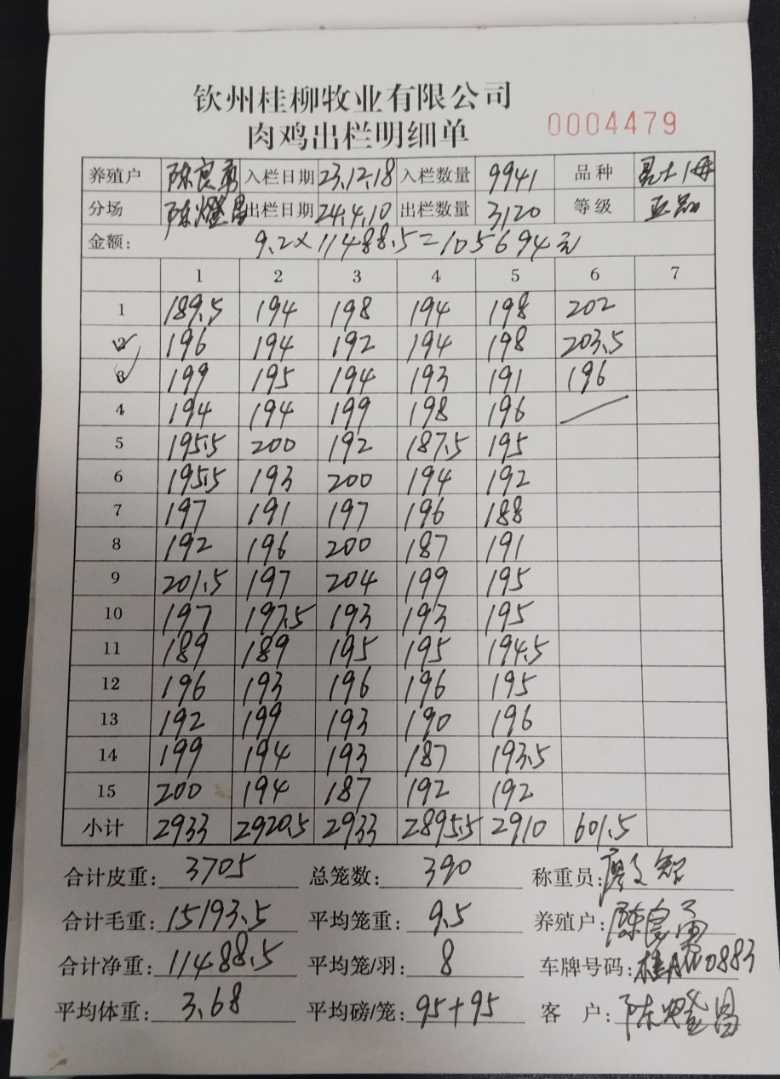 钦州桂柳牧业有限公司
肉鸡出栏明细单 0004479
养殖户 陈良勇 入栏日期 23.12.18 入栏数量 9941 品种
分场 陈燈昌 出栏日期 24.4.10 出栏数量 3120 等级
金额: 9.2×11488.5=105694元
1 2 3 4 5 6 7
1 189.5 194 198 194 198 202
2 196 194 192 194 198 203.5
3 199 195 194 193 191 196
4 194 194 199 198 196
5 195.5 200 192 187.5 195
6 195.5 193 200 194 192
7 197 191 197 196 188
8 192 196 200 187 191
9 201.5 197 204 199 195
10 197 197.5 193 193 195
11 189 189 195 195 194.5
12 196 193 196 196 195
13 192 199 193 190 196
14 199 194 193 187 193.5
15 200 194 187 192 192
小计 2933 2920.5 2933 2895.5 2910 601.5
合计皮重: 3705 总笼数: 390 称重员: 廖文智
合计毛重: 15193.5 平均笼重: 9.5 养殖户: 陈良勇
合计净重: 11488.5 平均笼/羽: 8 车牌号码: 0883
平均体重: 3.68 平均磅/笼: 95+95 客 户: 陈燈昌